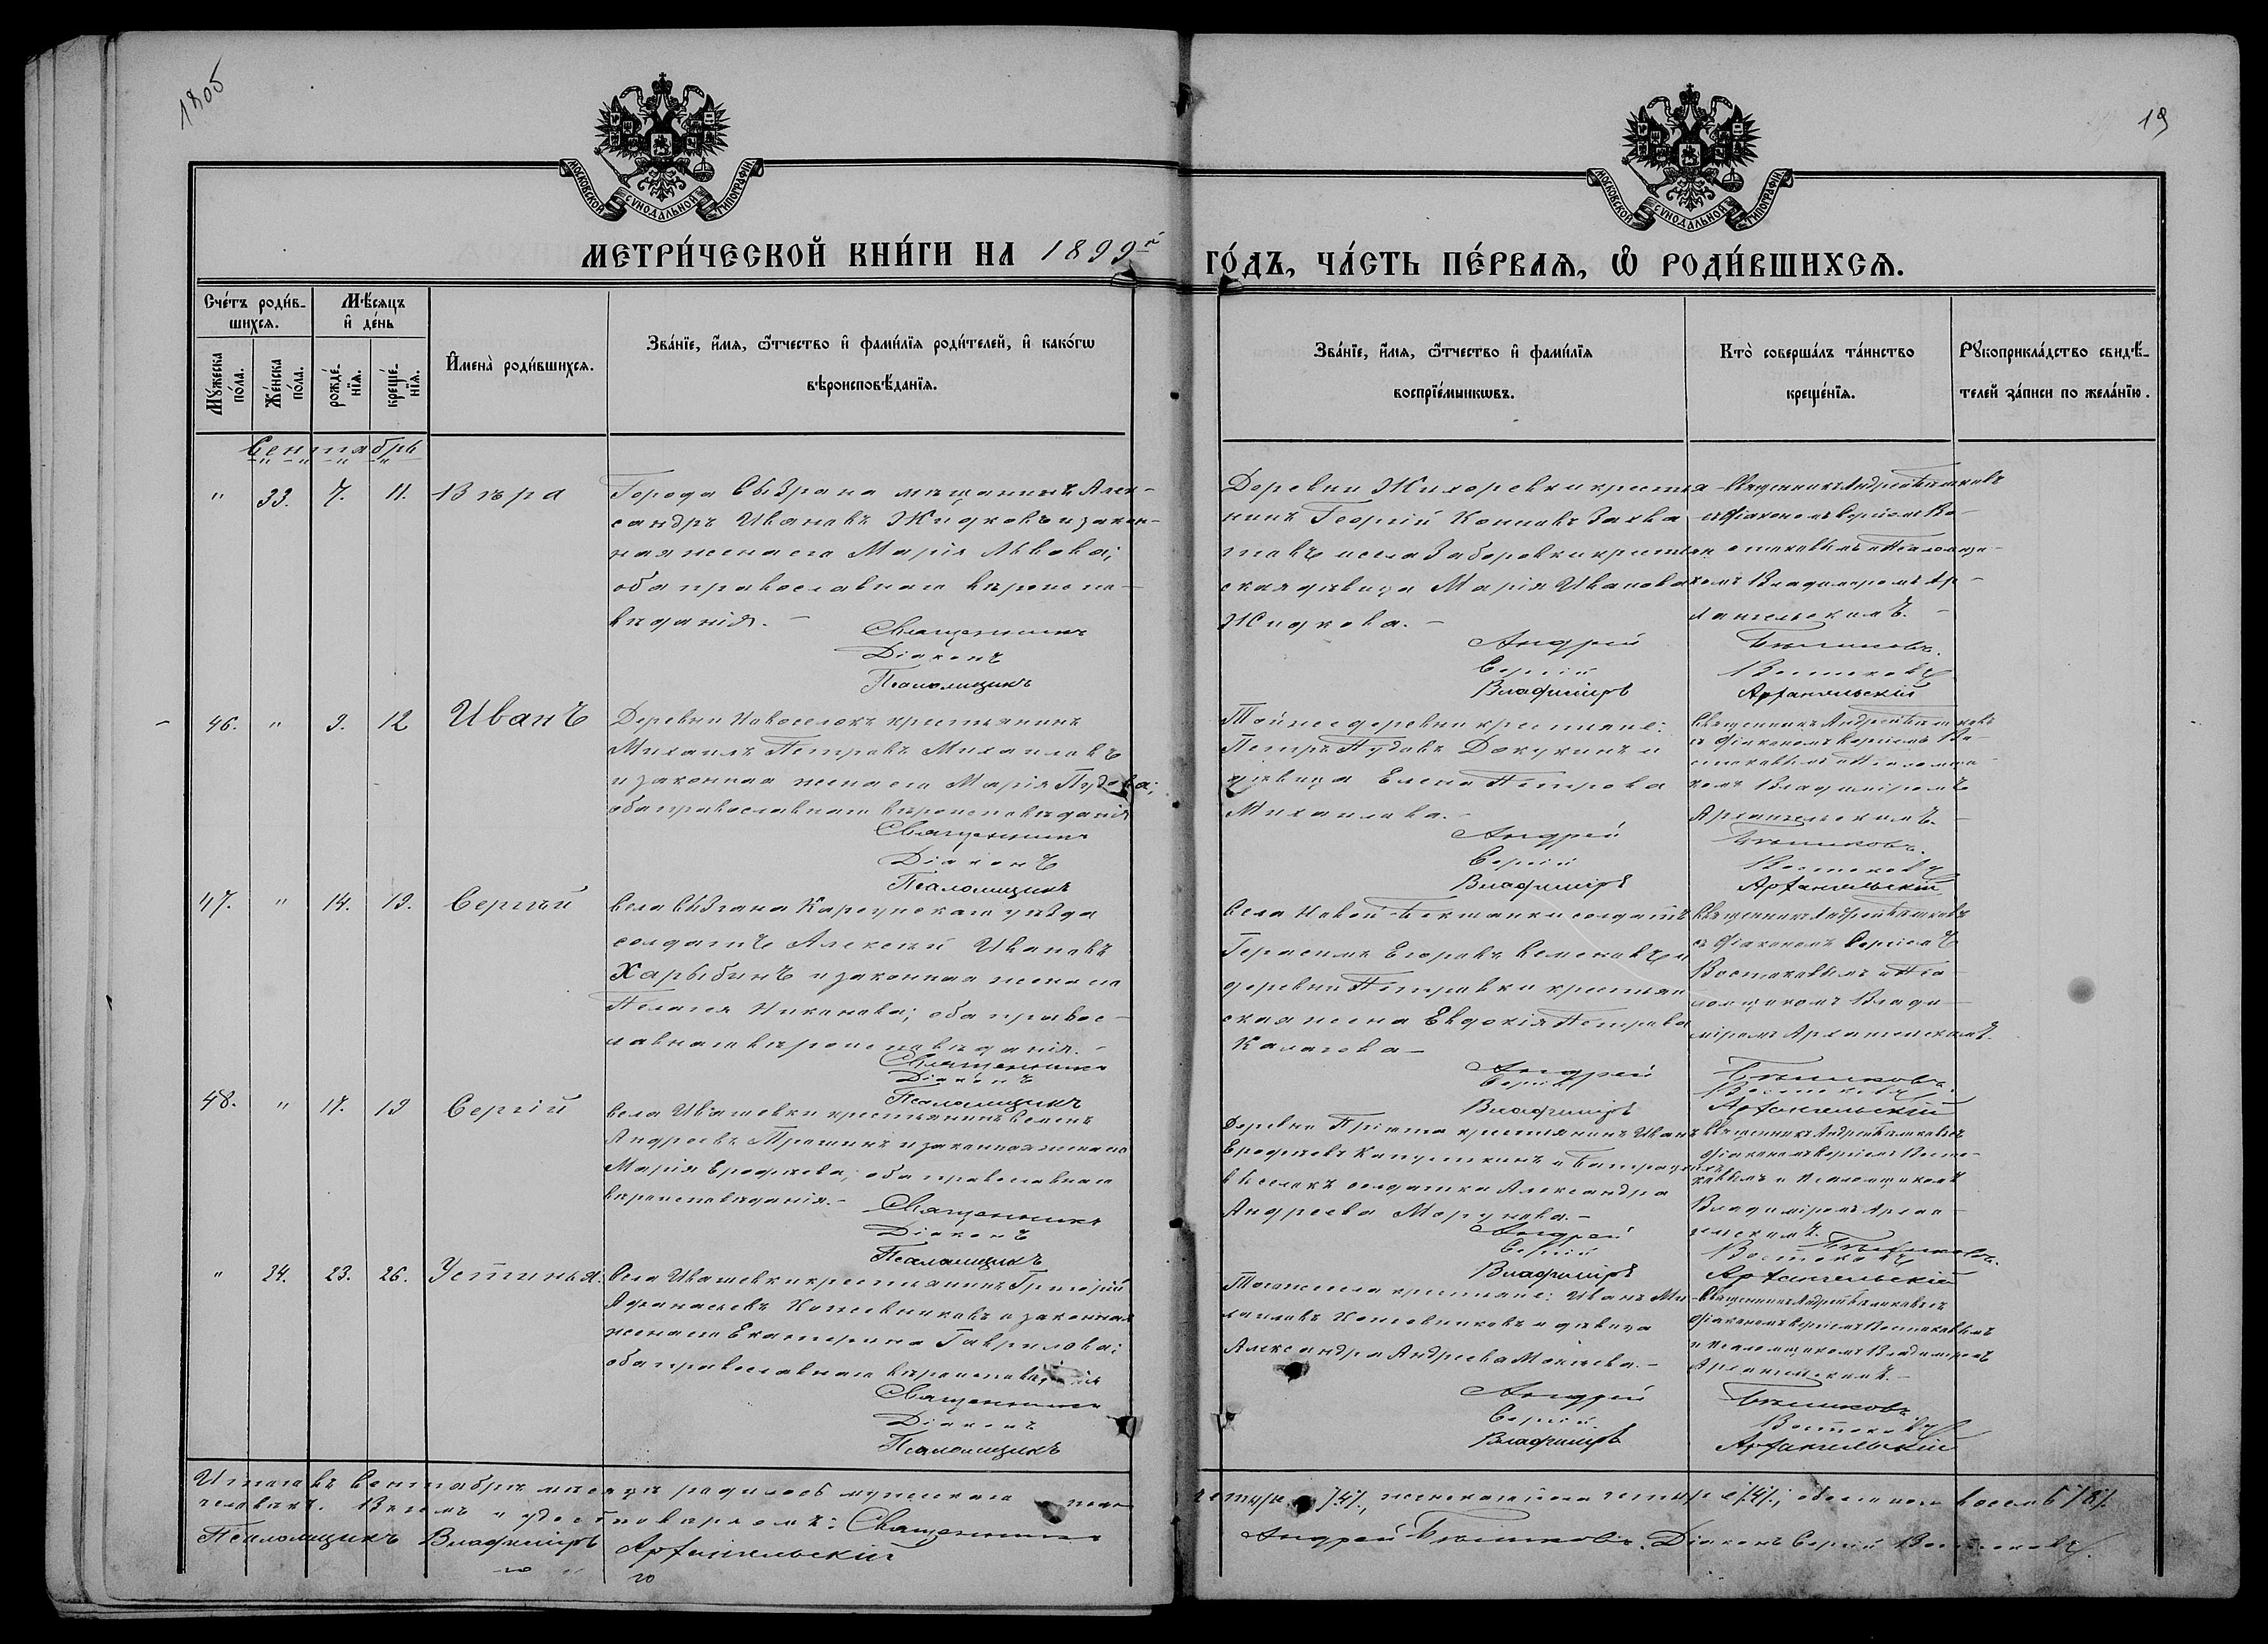 1805
19
МОСКОВСКОЙ СѴНОДАЛЬНОЙ ТИПОГРАФІИ
МОСКОВСКОЙ СѴНОДАЛЬНОЙ ТИПОГРАФІИ
МЕТРИ́ЧЕСКОЙ КНИ́ГИ НА 1899й ГО́ДЪ, ЧА́СТЬ ПЕ́РВАѦ, Ѽ РОДИ́ВШИХСѦ.
Сче́тъ роди́в-
шихсѧ.
Мѣ́сѧцъ
и҆ де́нь
Мꙋ́жеска по́ла.
Же́нска по́ла.
рожде́-
нїѧ.
креще́-
нїѧ.
И҆мена̀ роди́вшихсѧ.
Зва́нїе, и҆́мѧ, ѻ҆́тчество и҆ фами́лїѧ роди́телей, и҆ како́гѡ
вѣроисповѣ́данїѧ.
Зва́нїе, и҆́мѧ, ѻ҆́тчество и҆ фами́лїѧ
воспрїе́мникѡвъ.
Кто̀ соверша́лъ та́инство
креще́нїѧ.
Рꙋкоприкла́дство свидѣ́-
телей за́писи по жела́нїю.
Сентябрь
" 33. 7. 11. Вѣра
Города Сызрана мѣщанинъ Алек-
сандръ Ивановъ Жидковъ и закон-
ная жена его Марія Львова;
оба православнаго вѣроиспо-
вѣданія.
Священникъ
Діаконъ
Псаломщикъ
Деревни Жихоревки крестья-
нинъ Георгій Захва-
товъ и села Заборовки крестьян-
ская дѣвица Марія Иванова
Жидкова.
Андрей
Сергій
Владиміръ
Священникъ Андрей
съ діакономъ Сергіемъ Во-
стоковымъ и псаломщи-
комъ Владиміромъ Ар-
хангельскимъ.
Востоковъ
Архангельскій
46. " 9. 12 Иванъ
Деревни Новоселокъ крестьянинъ
Михаилъ Петровъ Михаиловъ
и законная жена его Марія Пудова;
оба православнаго вѣроисповѣданія
Священникъ
Діаконъ
Псаломщикъ
Той же деревни крестьяне:
Петръ Пудовъ Докукинъ и
дѣвица Елена Петрова
Михаилова.
Андрей
Сергій
Владиміръ
Священникъ Андрей
съ діакономъ Сергіемъ Во-
стоковымъ и псаломщи-
комъ Владиміромъ
Архангельскимъ.
Востоковъ
Архангельскій
47. " 14. 19. Сергѣй
Села Карсунскаго уѣзда
солдатъ Алексѣй Ивановъ
Харыбинъ и законная жена его
Пелагея Никонова; оба правос-
лавнаго вѣроисповѣданія.
Священникъ
Діаконъ
Псаломщикъ
Села Новой Бекшанки солдатъ
Герасимъ Егоровъ Семеновъ и
деревни Петровки крестьян-
ская жена Евдокія Петрова
Калагова
Андрей
Сергій
Владиміръ
Священникъ Андрей
съ діакономъ Сергіемъ
Востоковымъ и пса-
ломщикомъ Влади-
міромъ Архангельскимъ.
Востоковъ
Архангельскій
48. " 17. 19 Сергій
Села Ивашевки крестьянинъ Семенъ
Андреевъ Трошинъ и законная жена его
Марія Ерофѣева; оба православнаго
вѣроисповѣданія.
Священникъ
Діаконъ
Псаломщикъ
Деревни крестьянинъ Иванъ
Ерофѣевъ и
солдатка Александра
Андреева Моргунова.
Андрей
Сергій
Владиміръ
Священникъ Андрей
діакономъ Сергіемъ Восто-
ковымъ и псаломщикомъ
Владиміромъ Архан-
гельскимъ.
Востоковъ
Архангельскій
" 34. 23. 26. Устинья.
Села Ивашевки крестьянинъ Григорій
Афанасьевъ Кожевниковъ и законная
жена его Екатерина Гаврилова;
оба православнаго
Священникъ
Діаконъ
Псаломщикъ
Того же села крестьяне: Иванъ Ми-
хаиловъ Кожевниковъ и дѣвица
Александра Андреева Мокѣева.
Андрей
Сергій
Владиміръ
Священникъ Андрей
діакономъ Сергіемъ Востоковымъ
и псаломщикомъ Владиміромъ
Архангельскимъ.
Востоковъ
Архангельскій
Итого въ Сентябрѣ мѣсяцѣ родилось мужескаго пола четыре /4/, женскаго пола четыре /4/; обоего пола восемь /8/
человѣкъ. Священникъ Андрей Діаконъ Сергій Востоковъ.
Псаломщикъ Владиміръ Архангельскій